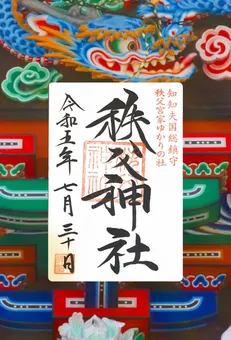 知知夫国総鎮守
秩父宮家ゆかりの社
秩父神社
令和五年 七月 三十日